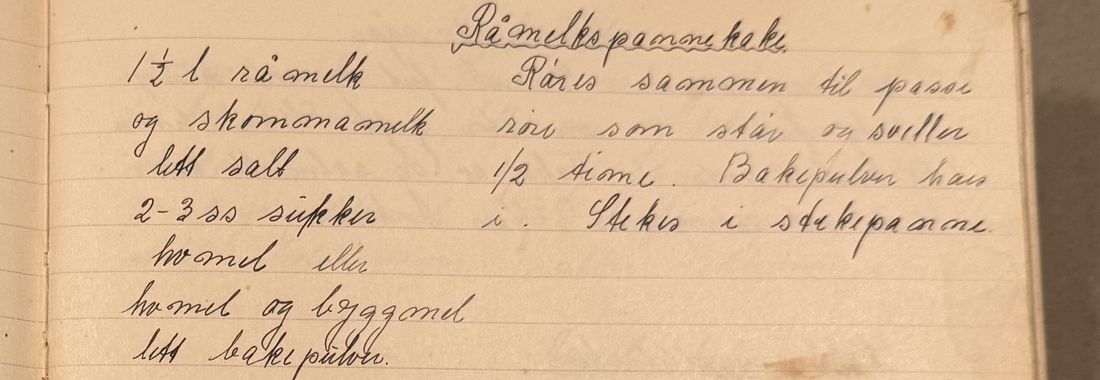 Råmelkspannekake
1 1/2 l råmelk
og skommamelk
litt salt
2-3 ss sukker
hvmel eller
hvmel og byggmel
litt bakepulver.
Røres sammen til passe
røre som står og sveller
1/2 time. Bakepulver haes
i. Stekes i stekepanne.